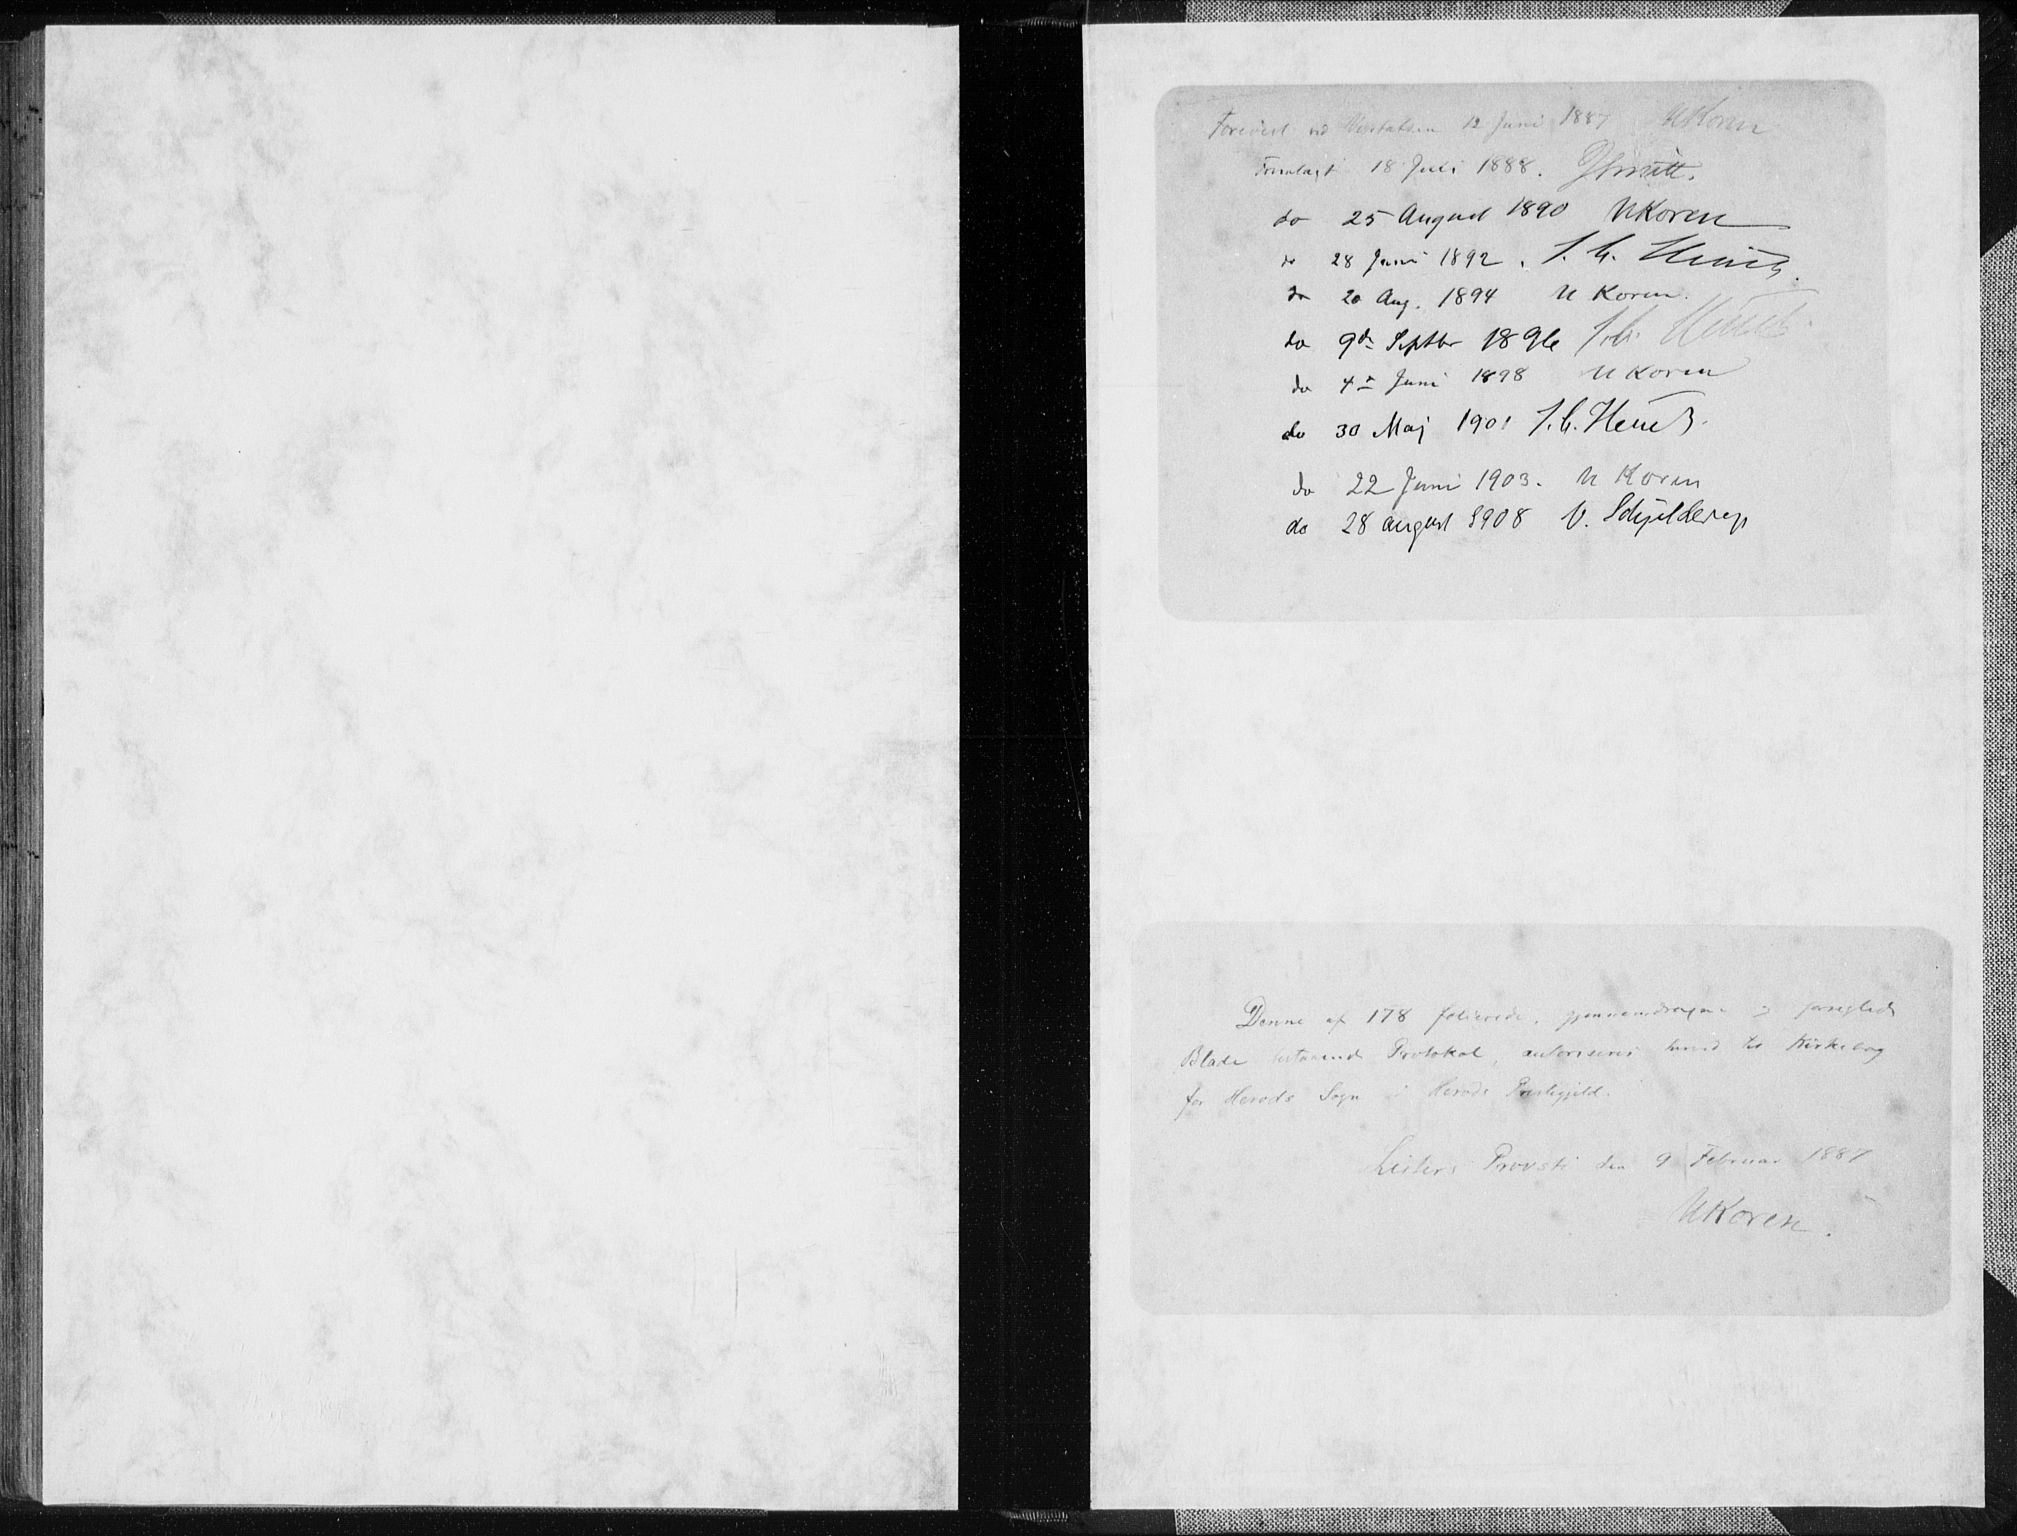 Forevist ved Visitatsen 12 Juni 1887 UKoren
Fremlagt 18 Juli 1888.
do 25 August 1890 UKoren
do 28 Juni 1892. J. C. Heuch.
do 20 Aug. 1894 U Koren.
do 9de Septbr 1896 J. C. Heuch.
do 4de Juni 1898 U Koren
do 30 Maj 1901 J. C. Heuch.
do 22 Juni 1903. U Koren
do 28 august 1908 V. Schjelderup
Denne af 178 folierede, gjennemdragne og forseglede
Blade bestaaende Protokol, autoriseres herved til Kirkebog
for Herads Sogn i Herads Prestegjeld.
Listers Provsti den 9 Februar 1887
UKoren.